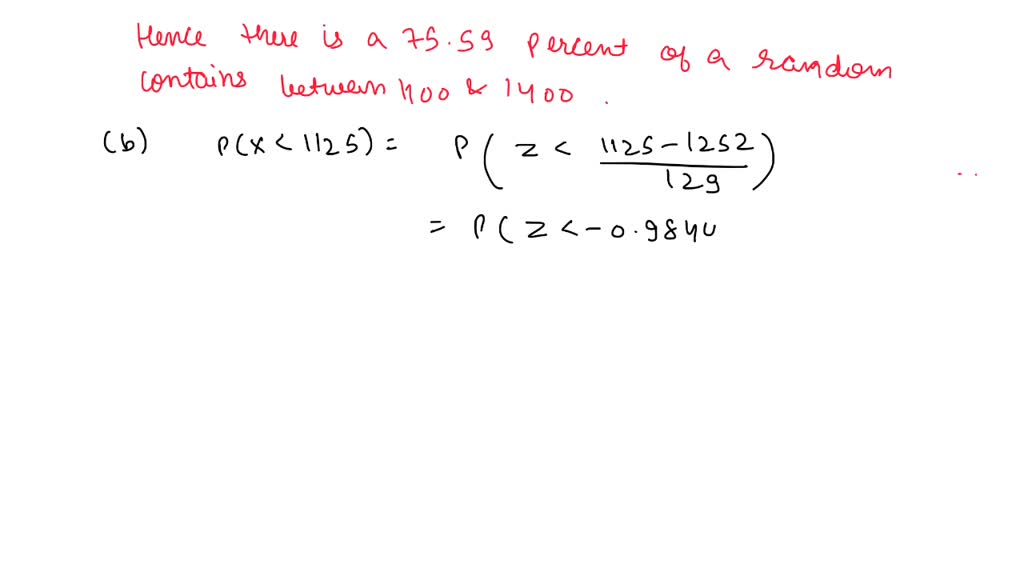 Hence there is a 75.59 percent of a random
contains between 1100 & 1400 .
(b) P(x < 1125) = P( z < \frac{1125-1252}{129} )
= P( z < -0.9840